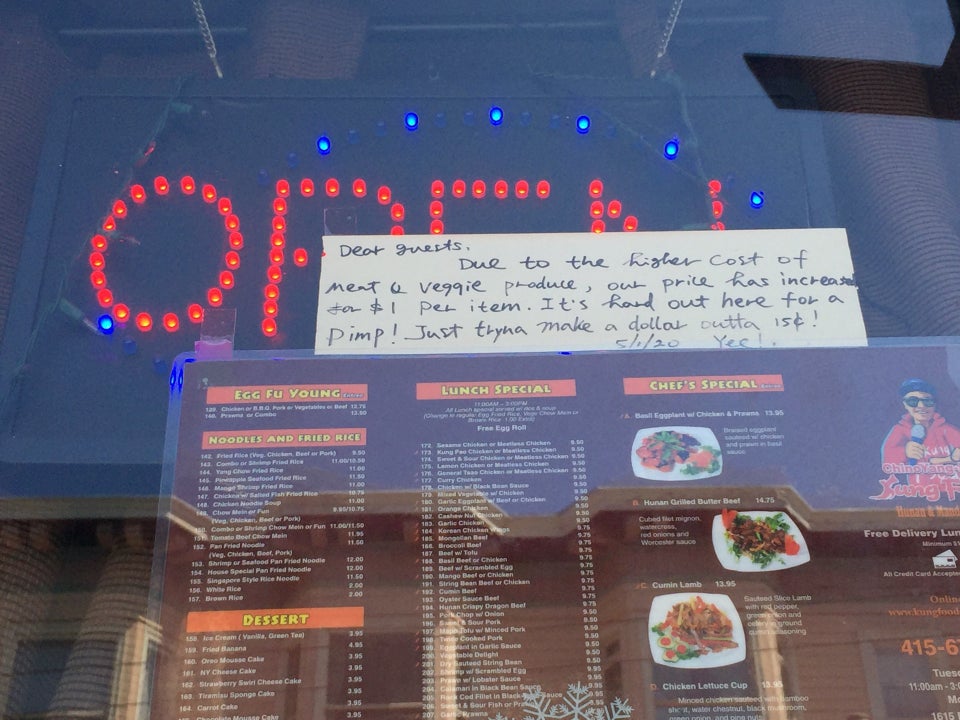 OPEN
Dear guests.
Due to the higher cost of
meat & veggie produce, our price has increased
for $1 per item. It's hard out here for a
pimp! Just tryna make a dollar outta 15¢!
5/1/20 Yee!.
EGG FU YOUNG Entree
139. Chicken or B.B.Q. Pork or Vegetables or Beef 12.75
140. Prawns or Combo 13.50
NOODLES AND FRIED RICE
142. Fried Rice (Veg, Chicken, Beef or Pork) 9.50
143. Combo or Shrimp Fried Rice 11.00/10.50
144. Yang Chow Fried Rice 11.00
145. Pineapple Seafood Fried Rice 11.50
146. Mango Shrimp Fried Rice 11.00
147. Chicken w/ Salted Fish Fried Rice 10.75
148. Chicken Noodle Soup 11.00
149. Chow Mein or Fun 9.95/10.75
(Veg, Chicken, Beef or Pork)
150. Combo or Shrimp Chow Mein or Fun 11.00/11.50
151. Tomato Beef Chow Mein 11.95
152. Pan Fried Noodle 11.50
(Veg, Chicken, Beef, Pork)
153. Shrimp or Seafood Pan Fried Noodle 12.00
154. House Special Pan Fried Noodle 12.00
155. Singapore Style Rice Noodle 11.50
156. White Rice 2.00
157. Brown Rice 2.00
DESSERT
158. Ice Cream ( Vanilla, Green Tea) 3.95
159. Fried Banana 4.95
160. Oreo Mousse Cake 3.95
161. NY Cheese Cake 3.95
162. Strawberry Swirl Cheese Cake 3.95
163. Tiramisu Sponge Cake 3.95
164. Carrot Cake 3.95
Chocolate Mousse Cake
LUNCH SPECIAL
11:00AM – 3:00PM
All Lunch special served w/ rice & soup
(Change to regular Egg Fried Rice, Vege Chow Mein or
Brown Rice 1.00 Extra)
Free Egg Roll
172. Sesame Chicken or Meatless Chicken 9.50
173. Kung Pao Chicken or Meatless Chicken 9.50
174. Sweet & Sour Chicken or Meatless Chicken 9.50
175. Lemon Chicken or Meatless Chicken 9.50
176. General Tsao Chicken or Meatless Chicken 9.50
177. Curry Chicken 9.50
178. Chicken w/ Black Bean Sauce 9.50
179. Mixed Vegetable w/ Chicken 9.50
180. Garlic Eggplant w/ Beef or Chicken 9.50
181. Orange Chicken 9.50
182. Cashew Nut Chicken 9.50
183. Garlic Chicken 9.50
184. Korean Chicken Wings 9.50
185. Mongolian Beef 9.75
186. Broccoli Beef 9.75
187. Beef w/ Tofu 9.75
188. Basil Beef or Chicken 9.75
189. Beef w/ Scrambled Egg 9.75
190. Mango Beef or Chicken 9.75
191. String Bean Beef or Chicken 9.75
192. Cumin Beef 9.75
193. Oyster Sauce Beef 9.75
194. Hunan Crispy Dragon Beef 9.75
195. Pork Chop w/ Onion 9.75
196. Sweet & Sour Pork 9.50
197. Mapo Tofu w/ Minced Pork 9.50
198. Twice Cooked Pork 9.50
199. Eggplant in Garlic Sauce 9.50
200. Vegetable Delight 9.50
201. Dry Sauteed String Bean 9.50
202. Shrimp w/ Scrambled Egg 9.95
203. Prawn w/ Lobster Sauce 9.95
204. Calamari in Black Bean Sauce
205. Rock Cod Fillet in Black Bean
206. Sweet & Sour Fish or Prawn
207. Garlic Prawns
CHEF'S SPECIAL Entree
A. Basil Eggplant w/ Chicken & Prawns 13.95
Braised eggplant
sauteed w/ chicken
and prawn in basil
sauce
B. Hunan Grilled Butter Beef 14.75
Cubed filet mignon,
watercress,
red onions and
Worcester sauce
C. Cumin Lamb 13.95
Sauteed Slice Lamb
with red pepper,
green onion and
celery in ground
cumin seasoning
D. Chicken Lettuce Cup 13.95
Minced chicken sauteed with bamboo
shoot, water chestnut, black mushroom,
green onion and pine nuts
KUNG
ChinoYang
Kung F
Hunan & Mand
Free Delivery Lun
Minimum $1
All Credit Card Accepte
Onlin
www.kungfood
415-6
Tuesd
11:00am - 3:0
Mo
1615